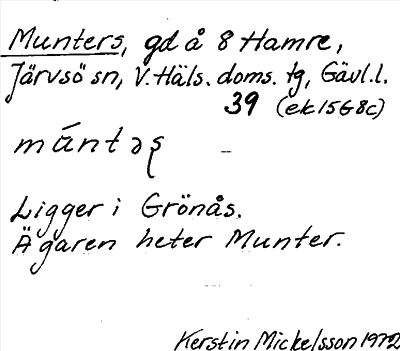 Munters, gd å 8 Hamre,
Järvsö sn, V. Häls. doms. tg, Gävl. l.
39 (ek 15G8c)
mántəʂ –
Ligger i Grönås.
Ägaren heter Munter.
Kerstin Mickelsson 1972